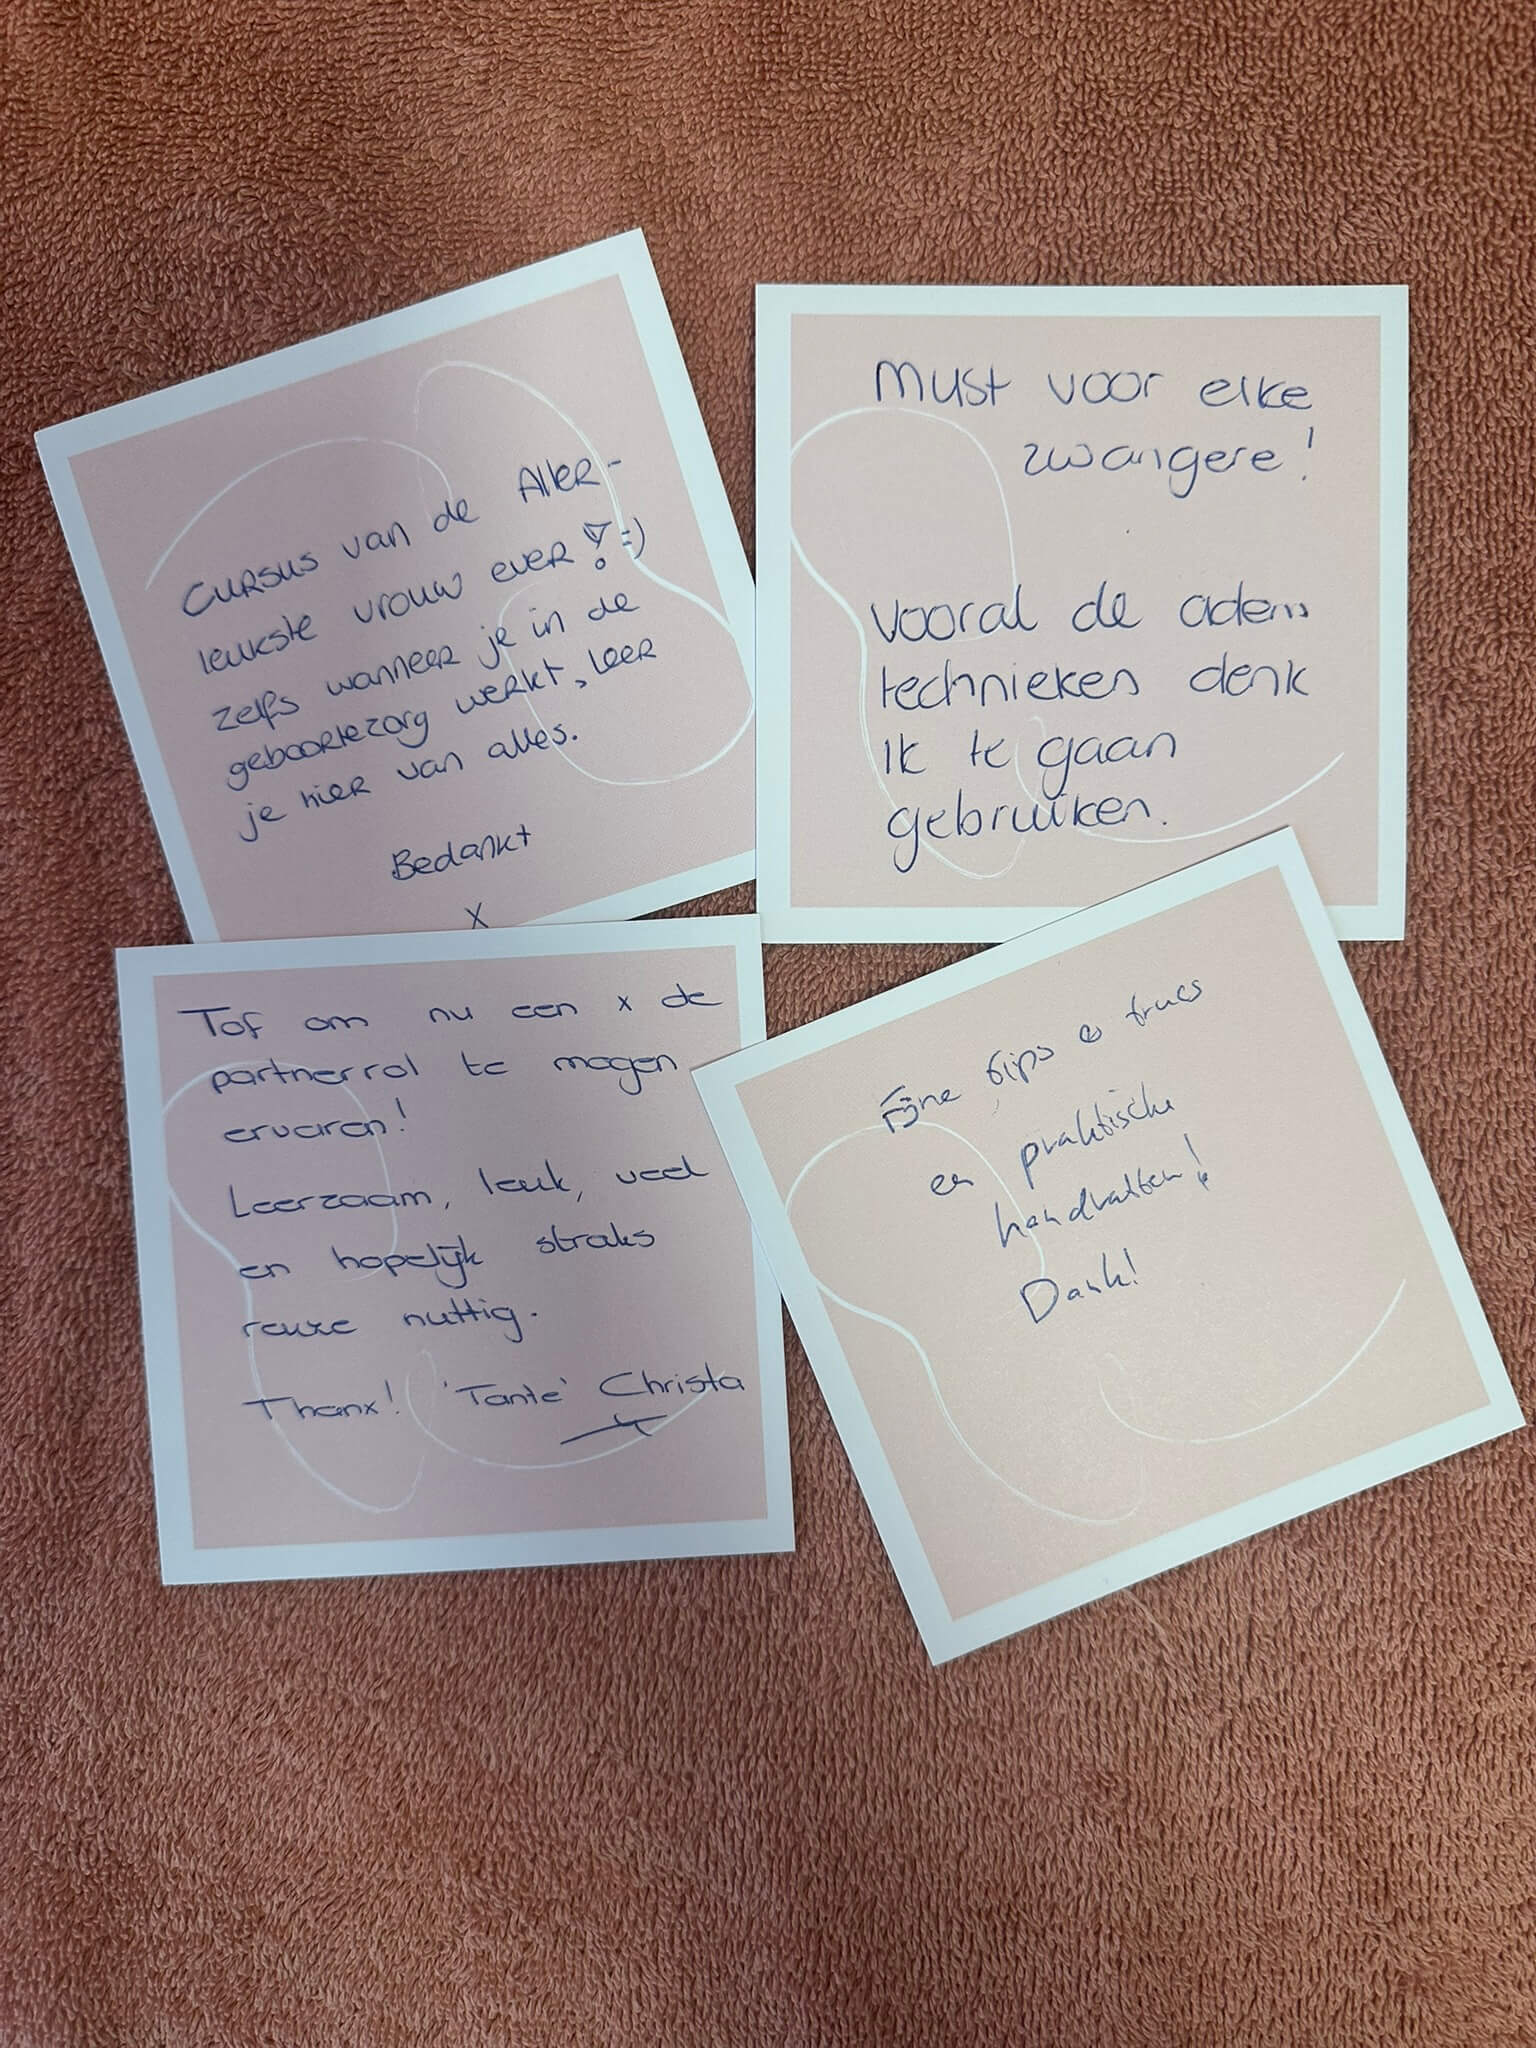 Cursus van de Aller-
leukste vrouw ever! :)
zelfs wanneer je in de
geboortezorg werkt, leer
je hier van alles.
Bedankt
x
Must voor elke
zwangere!
vooral de adem
technieken denk
ik te gaan
gebruiken.
Tof om nu een x de
partnerrol te mogen
ervaren!
Leerzaam, leuk, veel
en hopelijk straks
reuze nuttig.
Thanx! 'Tante' Christa
Fijne tips & trucs
en praktische
handvatten!
Dank!